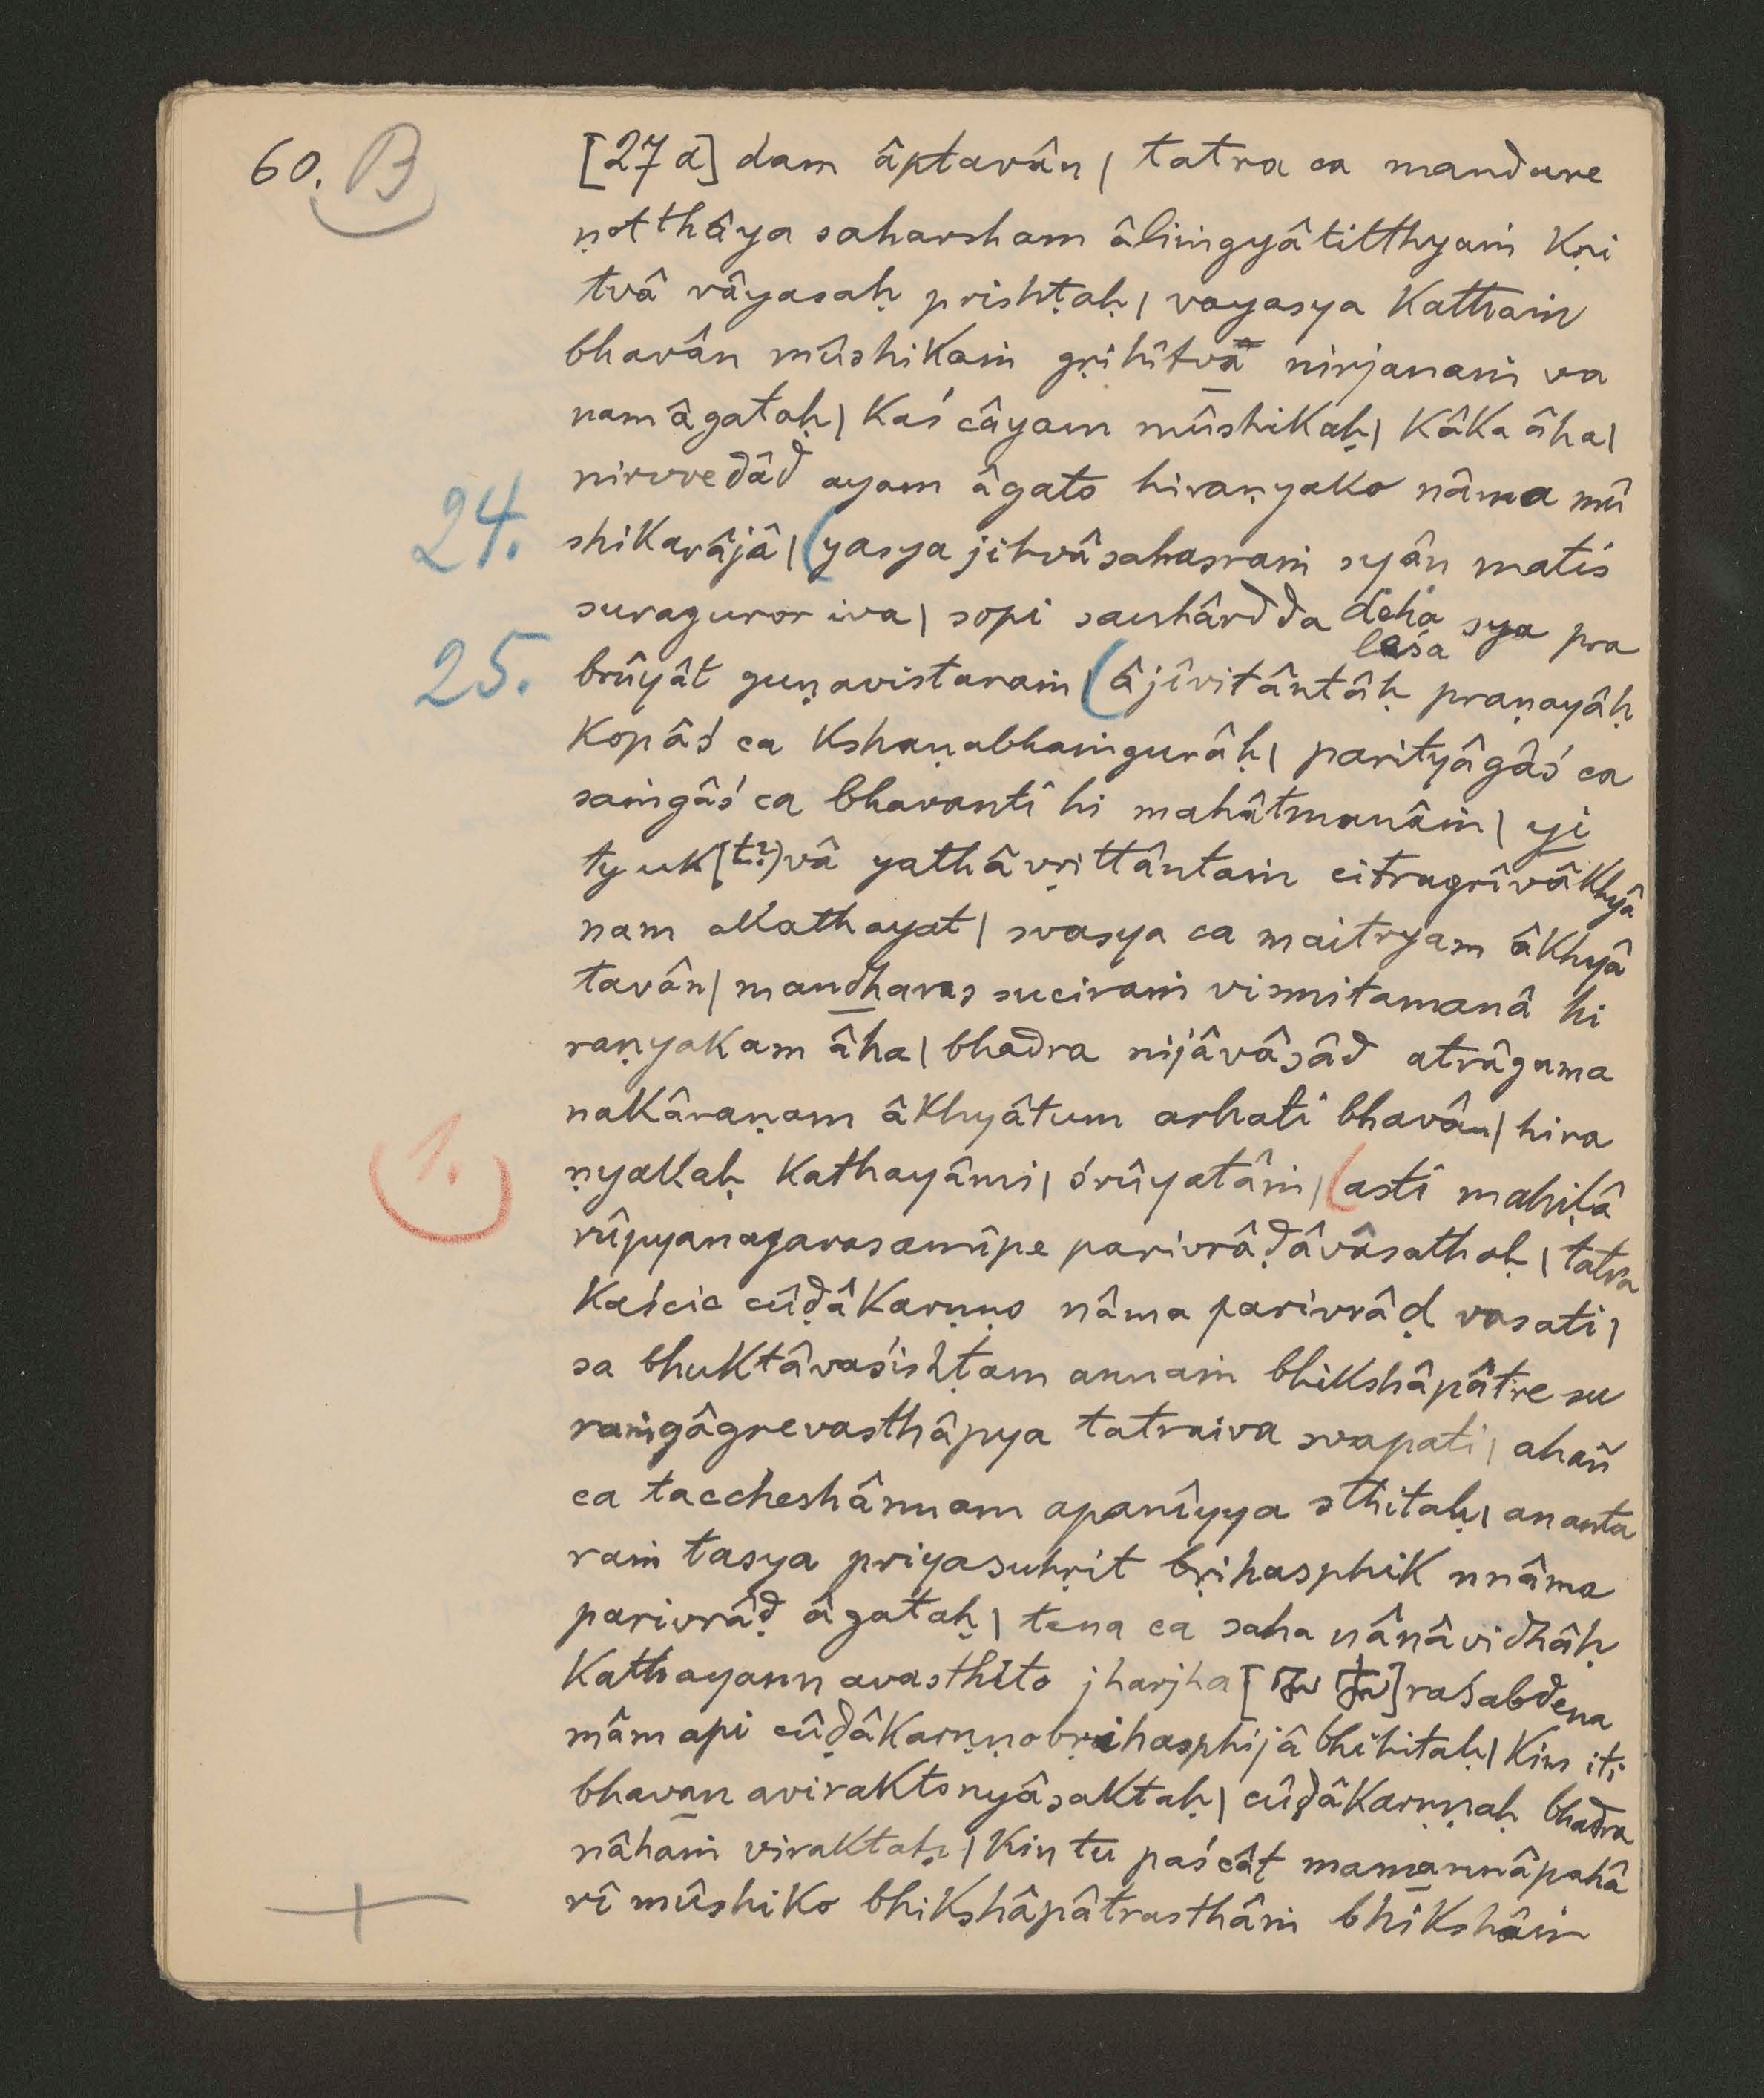 60. B
[27 a] dam âptavân | tatra ca mandare
ṇotthâya saharsham âliṁgyâtitthyaṁ kṛi
tvâ vâyasaḥ prishṭaḥ | vayasya kathaṁ
bhavân mûshikaṁ gṛihîtvâ nirjanaṁ va
nam âgataḥ | kaś câyam mûshikaḥ | kâka âha |
nirvvedâd ayam âgato hiraṇyako nâma mû
24. shikarâjâ | (yasya jihvâsahasraṁ syân matis
suraguror iva | sopi sauhârdda deha sya pra
leśa
25. brûyât guṇavistaraṁ (âjîvitântâḥ praṇayâḥ
kopâś ca kshaṇabhaṁgurâḥ | parityâgâś ca
saṁgâś ca bhavanti hi mahâtmanâṁ | yi
ty uk[t?]vâ yathâvṛittântaṁ citragrîvâkhyâ
nam akathayat | svasya ca maitryam âkhyâ
tavân | mandharas suciraṁ vismitamanâ hi
raṇyakam âha | bhadra nijâvâsâd atrâgama
nakâraṇam âkhyâtum arhati bhavân | hira
1. ṇyakaḥ kathayâmi | śrûyatâṁ | (asti mahiḷâ
rûpyanagarasamîpe parivrâḍâvâsathaḥ | tatra
kaścic cûḍâkarṇṇo nâma parivrâḍ vasati |
sa bhuktâvaśishṭam annaṁ bhikshâpâtre su
raṁgâgrevasthâpya tatraiva svapati | ahañ
ca taccheshânnam apanîyya sthitaḥ | ananta
raṁ tasya priyasuhṛit bṛihasphik nnâma
parivrâḍ âgataḥ | tena ca saha nânâvidhâḥ
kathayann avasthito jharjha [ ]raśabdena
mâm api cûḍâkarṇṇobṛihasphijâbhihitaḥ | kim iti
bhavan aviraktonyâsaktaḥ | cûḍâkarṇṇaḥ bhadra
nâhaṁ viraktaḥ | kin tu paścât mamannâpahâ
rî mûshiko bhikshâpâtrasthâṁ bhikshâṁ